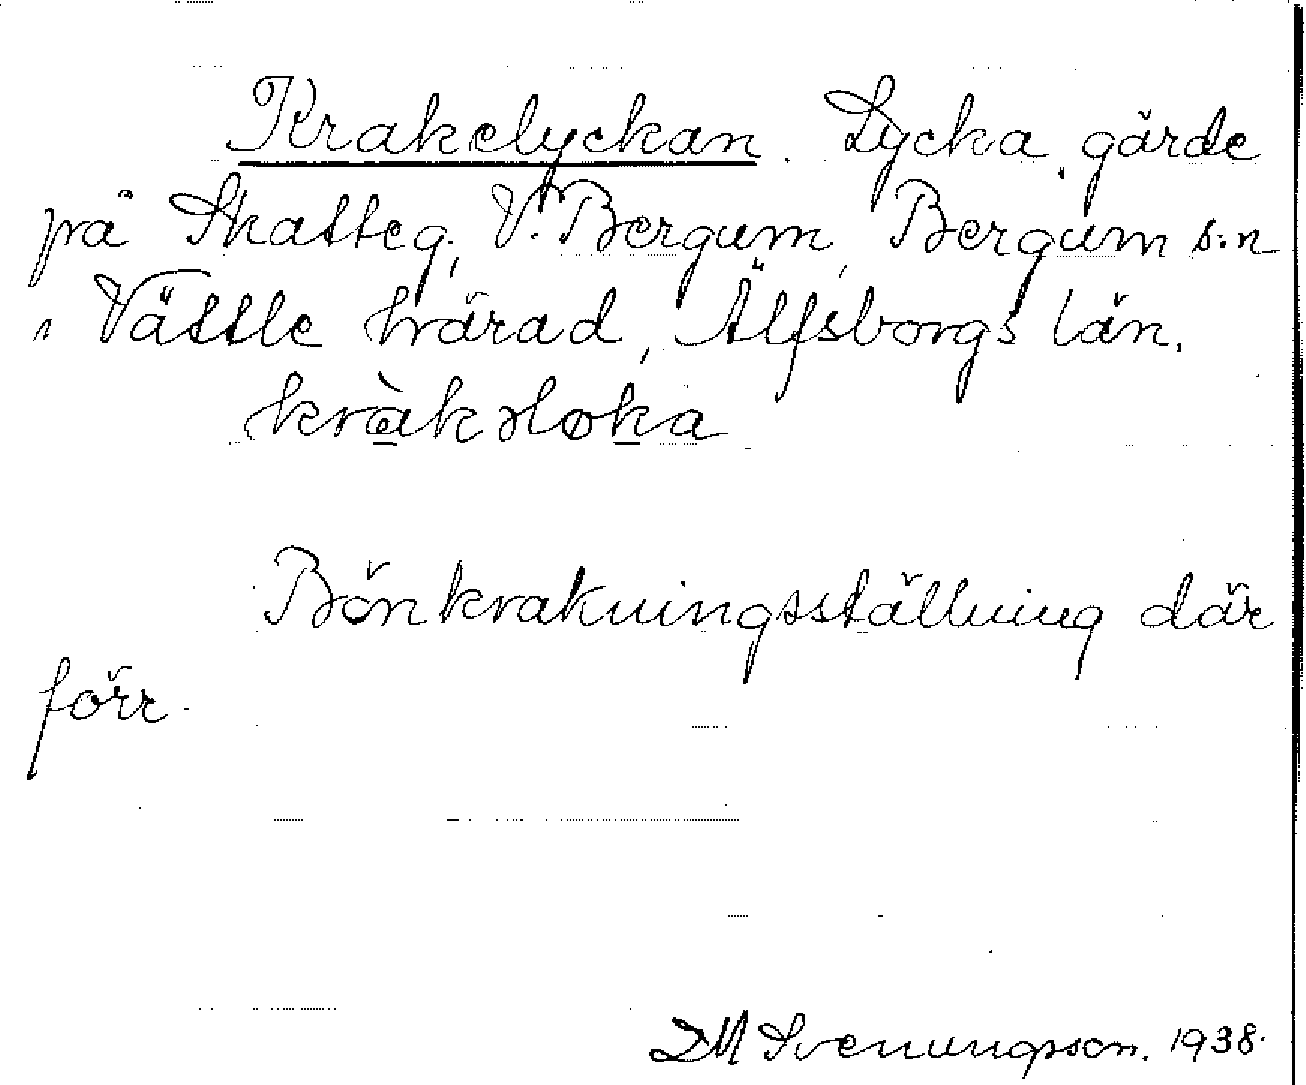 Krakelyckan. Lycka, gärde
på Skatteg., V. Bergum, Bergum s:n
i Vättle härad, Älfsborgs län.
kràkəløka
Bönkrakningsställning där
förr.
DM Svenungsson. 1938.